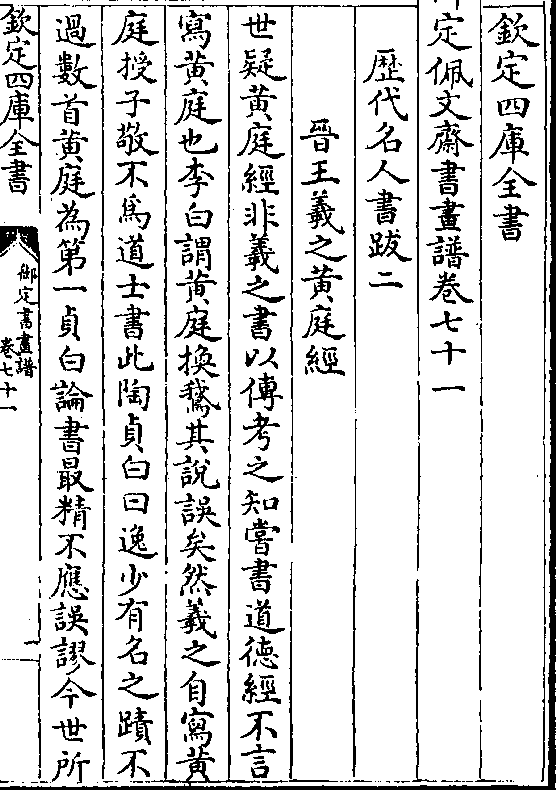 欽定四庫全書
御定佩文齋書畫譜卷七十一
歷代名人書跋二
晉王羲之黃庭經
世疑黃庭經非羲之書以傳考之知嘗書道德經不言
寫黃庭也李白謂黃庭換鵝其說誤矣然羲之自寫黃
庭授子敬不爲道士書此陶貞白曰逸少有名之蹟不
過數首黃庭為第一貞白論書最精不應誤謬今世所
欽定四庫全書
御定書畫譜
卷七十一
一